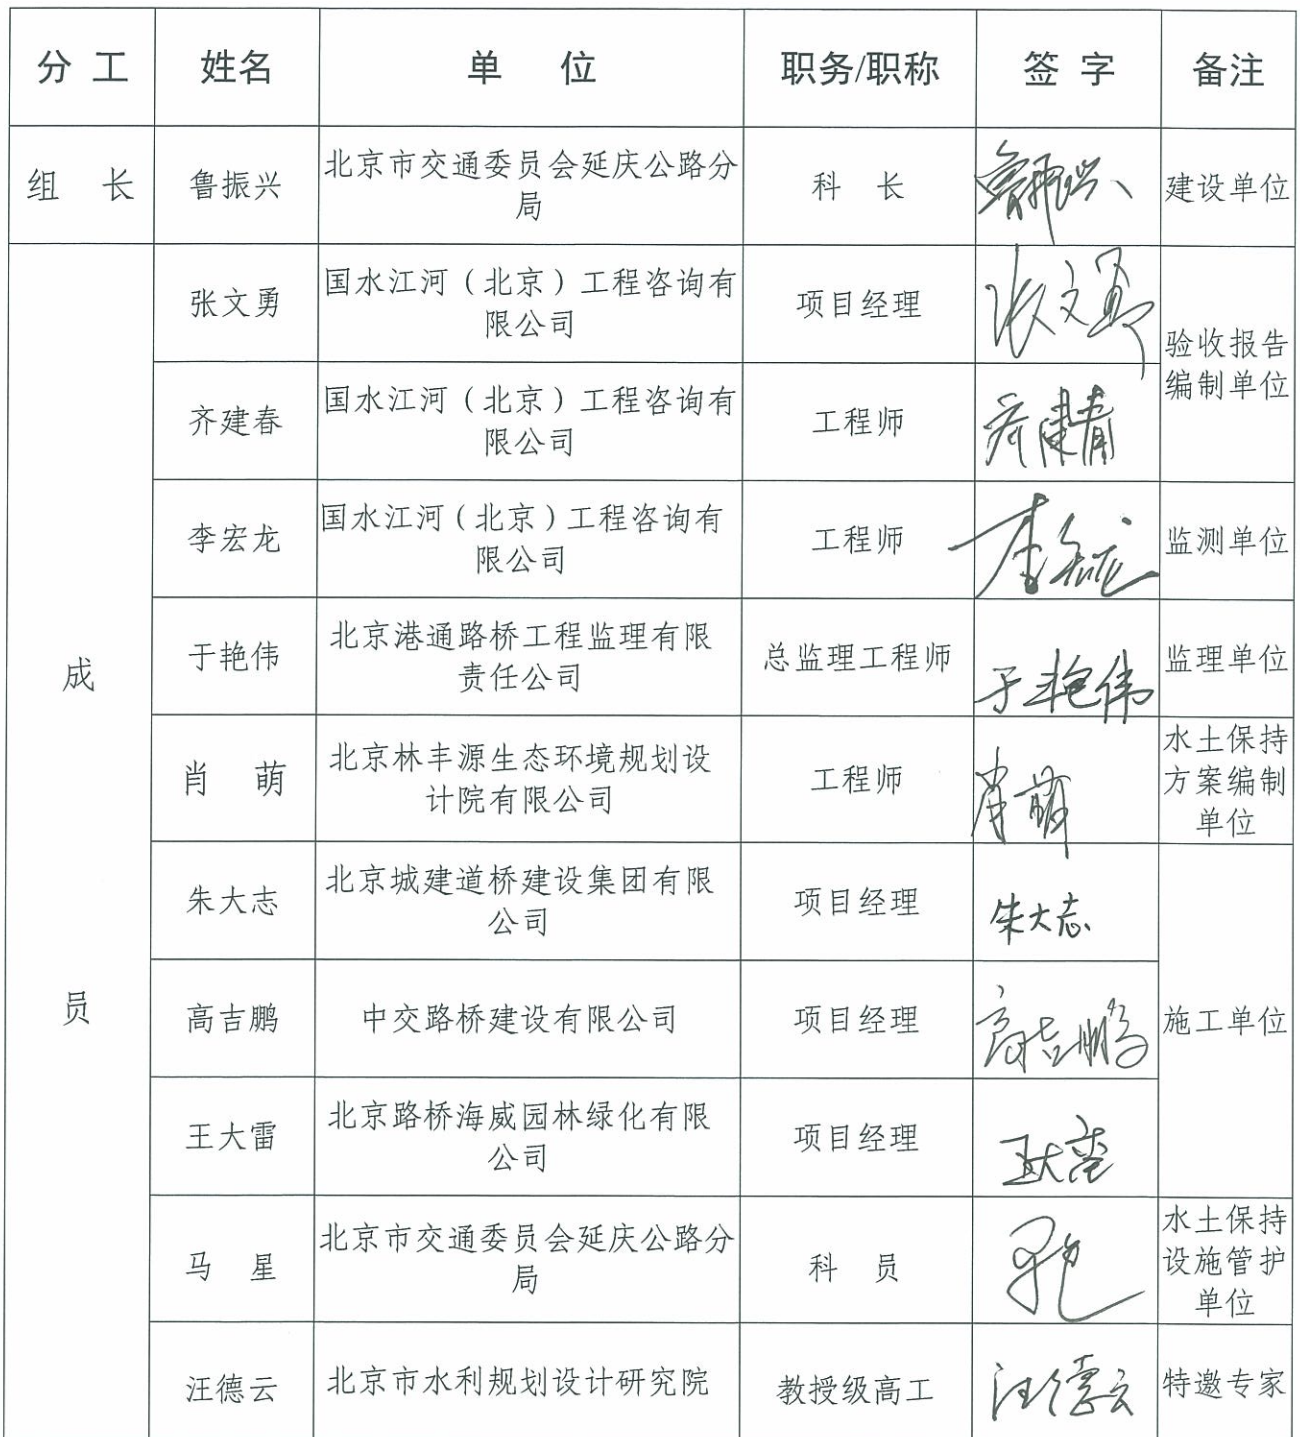 分 工 姓名 单 位 职务/职称 签 字 备注
组 长 鲁振兴 北京市交通委员会延庆公路分 科 长 鲁振兴 建设单位
局
张文勇 国水江河（北京）工程咨询有 项目经理 张文勇
限公司
验收报告
编制单位
齐建春 国水江河（北京）工程咨询有 工程师 齐建春
限公司
李宏龙 国水江河（北京）工程咨询有 工程师 李宏龙 监测单位
限公司
成
于艳伟 北京港通路桥工程监理有限 总监理工程师 于艳伟 监理单位
责任公司
肖 萌 北京林丰源生态环境规划设 工程师 肖萌 水土保持
计院有限公司 方案编制
单位
朱大志 北京城建道桥建设集团有限 项目经理 朱大志
公司
员
高吉鹏 中交路桥建设有限公司 项目经理 高吉鹏 施工单位
王大雷 北京路桥海威园林绿化有限 项目经理 王大雷
公司
马 星 北京市交通委员会延庆公路分 科 员 水土保持
局 设施管护
单位
汪德云 北京市水利规划设计研究院 教授级高工 汪德云 特邀专家